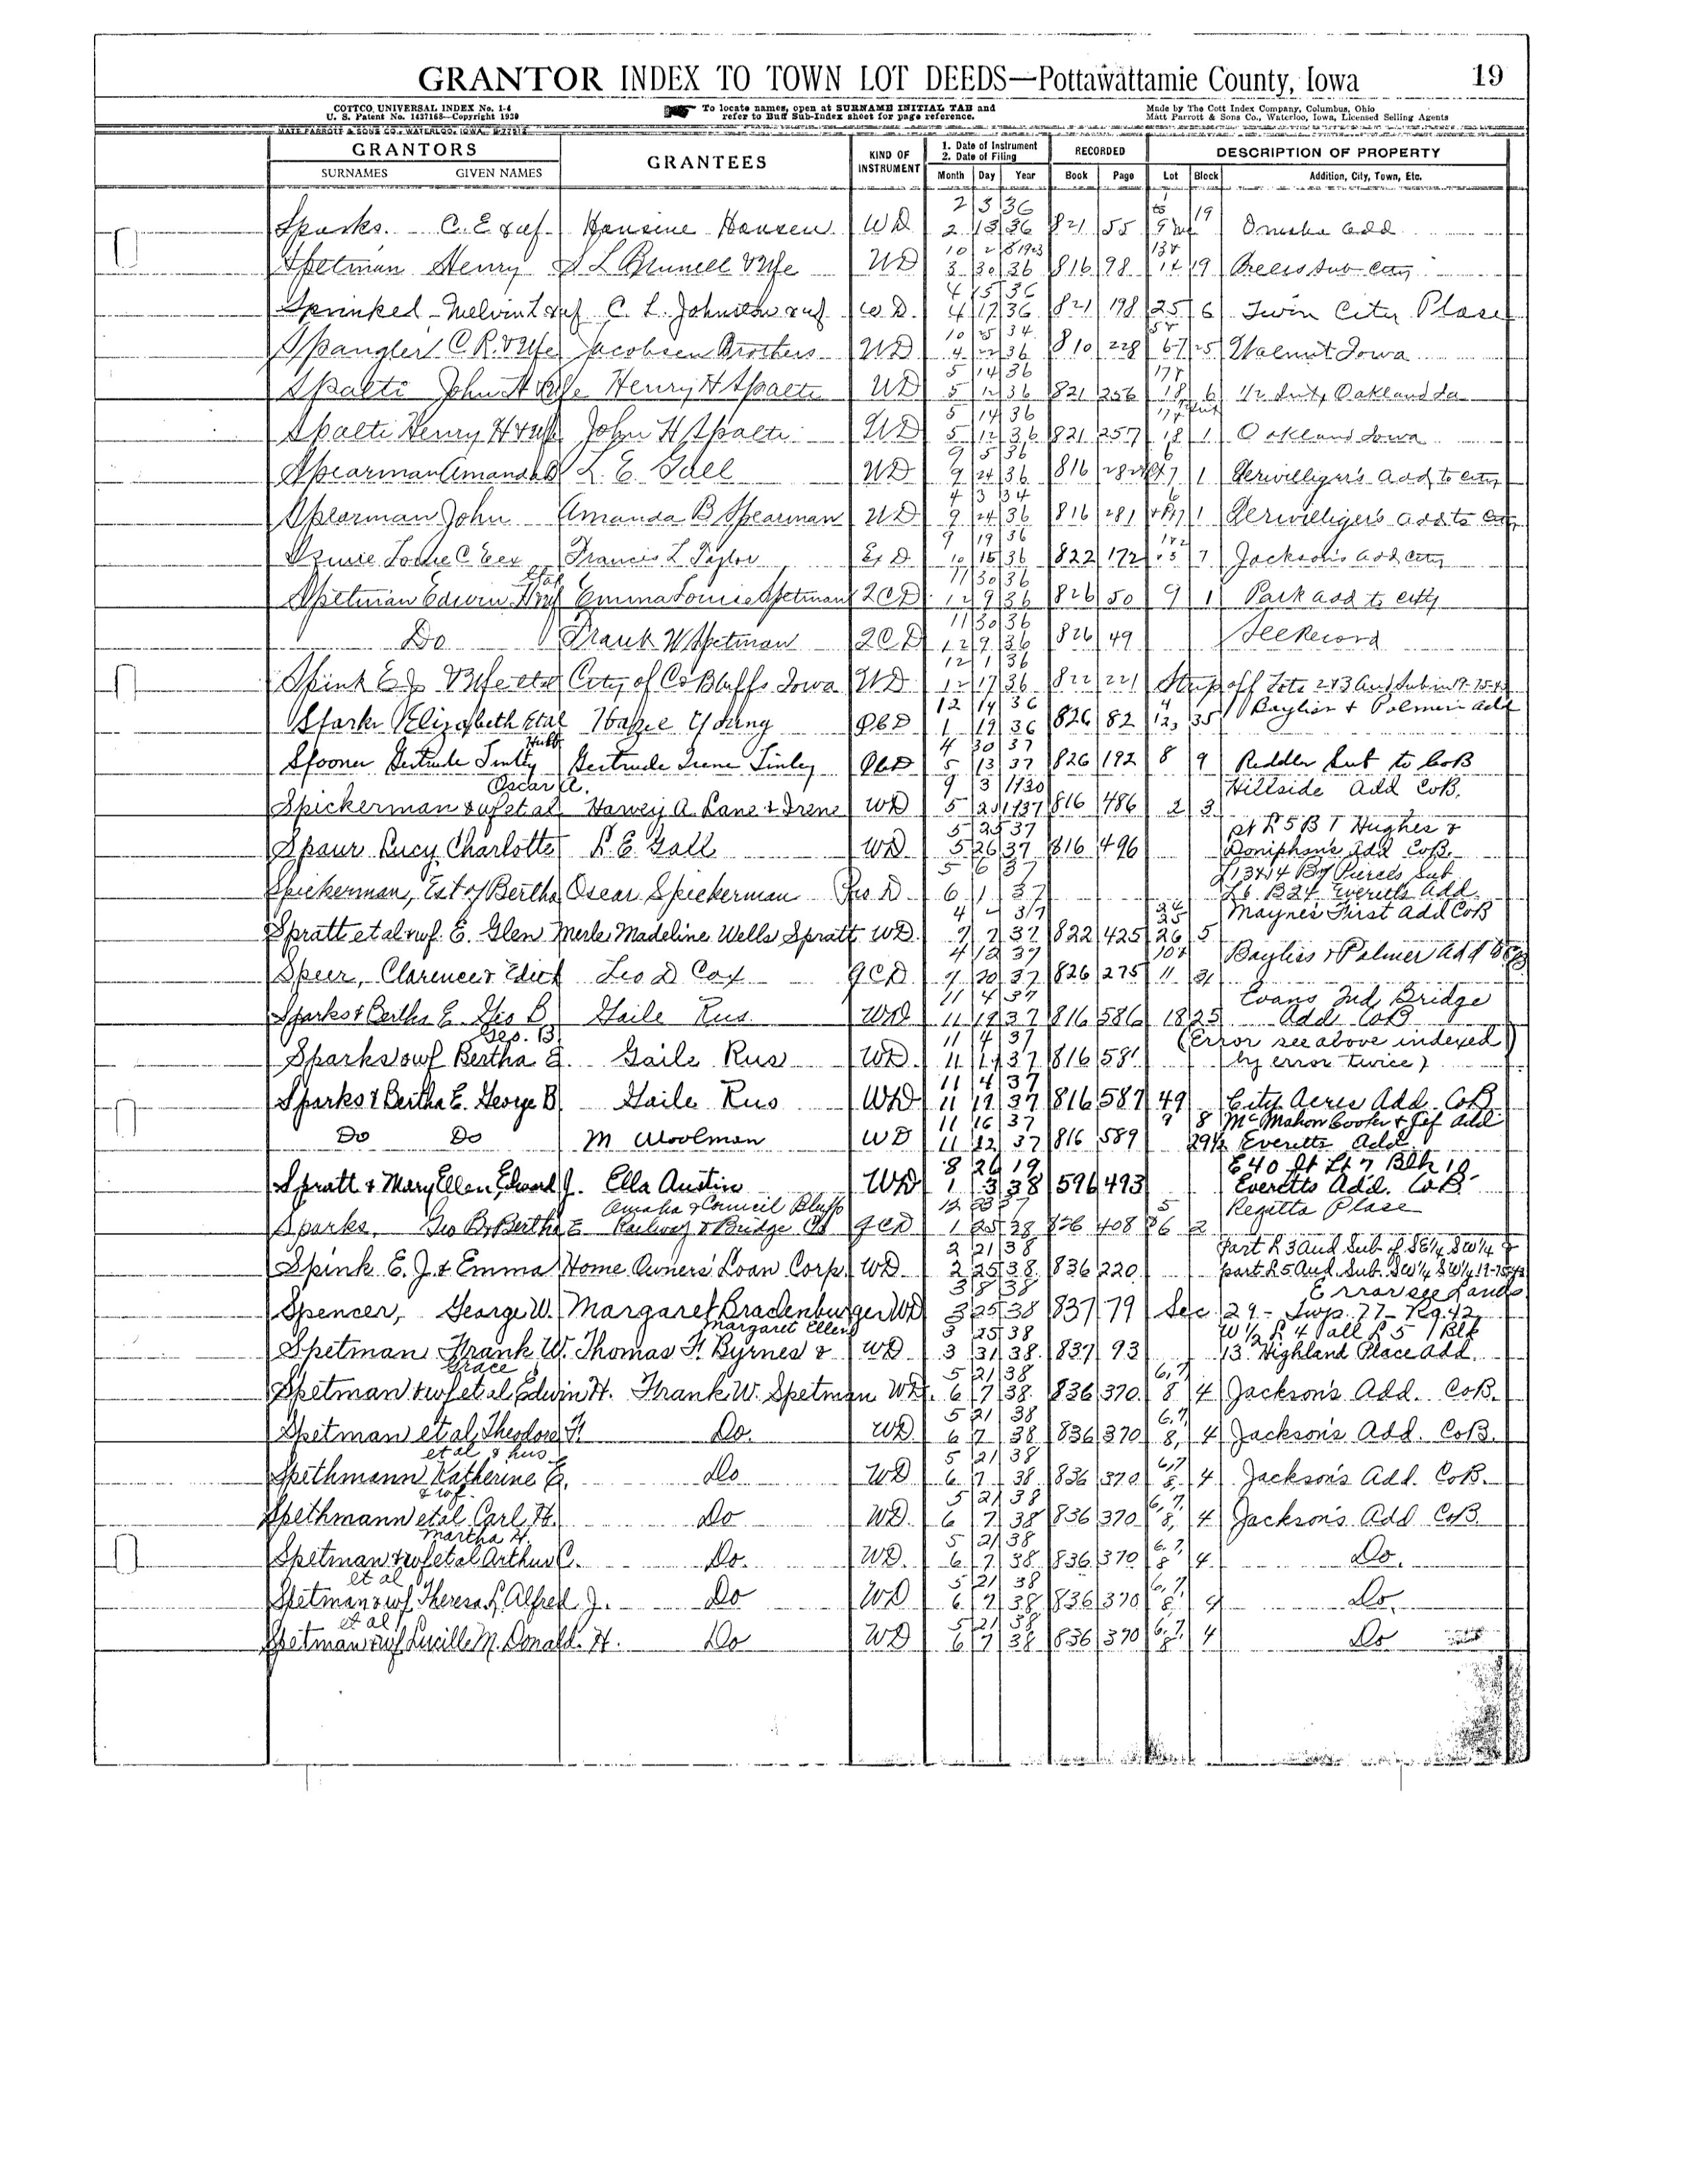 GRANTOR INDEX TO TOWN LOT DEEDS—Pottawattamie County, Iowa 19
COTTCO UNIVERSAL INDEX No. 1-4
U. S. Patent No. 1437168—Copyright 1930
To locate names, open at SURNAME INITIAL TAB and
refer to Buff Sub-Index sheet for page reference.
Made by The Cott Index Company, Columbus, Ohio
Matt Parrott & Sons Co., Waterloo, Iowa, Licensed Selling Agents
MATT PARROTT & SONS CO., WATERLOO, IOWA
GRANTORS GRANTEES KIND OF INSTRUMENT 1. Date of Instrument 2. Date of Filing RECORDED DESCRIPTION OF PROPERTY
SURNAMES GIVEN NAMES Month Day Year Book Page Lot Block Addition, City, Town, Etc.
2 3 36
Sparks. C. E & wf. Hansine Hansen WD 2 13 36 821 55 19 Omaha add
10 2 1923
Spetman Henry S L Brunell & Wife WD 3 30 36 816 98 19 Beers Sub City
4 15 36
Sprinkel Melvin L & wf C. L. Johnston & wf WD. 4 17 36 821 198 25 6 Twin City Place
10 25 34
Spangler C. R. & Wife Jacobsen Brothers WD 4 22 36 810 228 67 25 Walnut Iowa
5 14 36
Spalti John H & Wife Henry H Spalti WD 5 12 36 821 256 18 6 1/2 Inty Oakland Ia
5 14 36
Spalti Henry H & Wf John H Spalti WD 5 12 36 821 257 18 1 Oakland Iowa
9 5 36
Spearman Amanda B L. E. Gall WD 9 24 36 816 282 7 1 Terwilliger's add to city
4 3 34
Spearman John Amanda B Spearman WD 9 24 36 816 281 1 Terwilliger's add to City
9 19 36
Francis L Taylor Ex D 10 15 36 822 172 7 Jackson's add City
11 30 36
Spetman Edwin H & wf Emma Louise Spetman QCD 12 9 36 826 50 9 1 Park add to city
11 30 36
Do Frank W Spetman QCD 12 9 36 826 49 See Record
12 1 36
Spink E J & Wife etal City of Co Bluffs Iowa WD 12 17 36 822 221 Strip off Lots 2 & 3 Aud Sub in 19-75-43
12 14 36 4 Bayliss & Palmers add
Spark Elizabeth Etal Hazel Young QCD 1 19 36 826 82 12, 35
Husb 4 30 37
Spooner Gertrude Tinley Gertrude Irene Tinley QCD 5 13 37 826 192 8 9 Riddles Sub to CoB
Oscar A. 9 3 1930 Hillside Add CoB.
Spickerman & wf et al Harvey A. Lane & Irene WD 5 20 1937 816 486 2 3
5 25 37 pt L 5 B 1 Hughes &
Spaur Lucy Charlotte L. E. Gall WD 5 26 37 816 496 Doniphan's Add CoB.
5 6 37 L 13 & 14 B 7 Pierces Sub
Spickerman, Est of Bertha Oscar Spickerman Pro D 6 1 37 L6 B24 Everetts Add
4 2 37 24 25 Maynes First Add CoB
Spratt et al & wf. E. Glen Merle Madeline Wells Spratt WD. 7 7 37 822 425 26 5
4 12 37 10 & Bayliss & Palmer Add
Speer, Clarence & Edith Leo D Cox QCD 7 20 37 826 275 11 31
11 4 37 Evans 2nd Bridge
Sparks & Bertha E Geo B Gaile Rus WD 11 19 37 816 586 18 25 Add CoB
Geo. B. 11 4 37 (Error see above indexed
Sparks & wf Bertha E. Gaile Rus WD 11 19 37 816 581 by error twice)
11 4 37
Sparks & Bertha E. George B Gaile Rus WD 11 19 37 816 587 49 City Acres Add CoB
11 16 37 9 8 McMahon Cooper & Jef Add
Do Do M Woolman WD 11 22 37 816 589 29 1/2 Everetts Add
8 26 19 E 40 ft Lt 7 Blk 18
Spratt & Mary Ellen, Edward J. Ella Austin WD 1 3 38 596 493 Everetts Add. CoB
Omaha & Council Bluffs 12 23 37 5 Regitta Place
Sparks, Geo B & Bertha E Railway & Bridge Co QCD 1 25 38 826 408 26 2
2 21 38 Part L 3 Aud Sub of SE 1/4 SW 1/4 &
Spink E. J. & Emma Home Owners' Loan Corp. WD 2 25 38 836 220 part L 5 Aud. Sub. SW 1/4 SW 1/4 19-75-43
3 8 38 Error see Lands
Spencer, George W. Margaret Bradenburger WD 3 25 38 837 79 Sec 29 - Twp. 77 - Rg. 42
Margaret Ellen 3 25 38 W 1/2 L 4 all L 5 Blk
Spetman Frank W. Thomas F. Byrnes & WD 3 31 38 837 93 13 Highland Place Add.
Grace 5 21 38 6, 7,
Spetman & wf et al Edwin H. Frank W. Spetman WD. 6 7 38 836 370 8 4 Jackson's Add. CoB.
5 21 38 6, 7,
Spetman et al Theodore F. Do. WD. 6 7 38 836 370 8, 4 Jackson's Add. CoB.
et al & hus. 5 21 38 6, 7
Spethmann Katherine E. Do WD 6 7 38 836 370 8, 4 Jackson's Add. CoB.
& wf. 5 21 38 6, 7,
Spethmann et al Carl H. Do WD. 6 7 38 836 370 8, 4 Jackson's Add CoB.
Martha H. 5 21 38 6, 7,
Spetman & wf et al Arthur C. Do. WD. 6 7 38 836 370 8 4 Do.
et al 5 21 38 6, 7,
Spetman & wf Theresa L, Alfred J. Do WD 6 7 38 836 370 8, 4 Do.
et al 5 21 38 6, 7,
Spetman & wf Lucille M. Donald. H. Do WD 6 7 38 836 370 8 4 Do